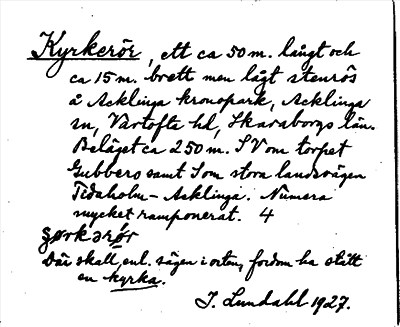 Kyrkerör, ett ca 50 m. långt och
ca 15 m. brett men lågt stenrös
å Acklinga kronopark, Acklinga
sn, Vartofta hd, Skaraborgs län.
Beläget ca 250 m. SV om torpet
Gubbero samt S om stora landsvägen
Tidaholm - Acklinga. Numera
mycket ramponerat. 4
ɣørkərør
Där skall, enl. sägen i orten, fordom ha stått
en kyrka.
J. Lundahl 1927.